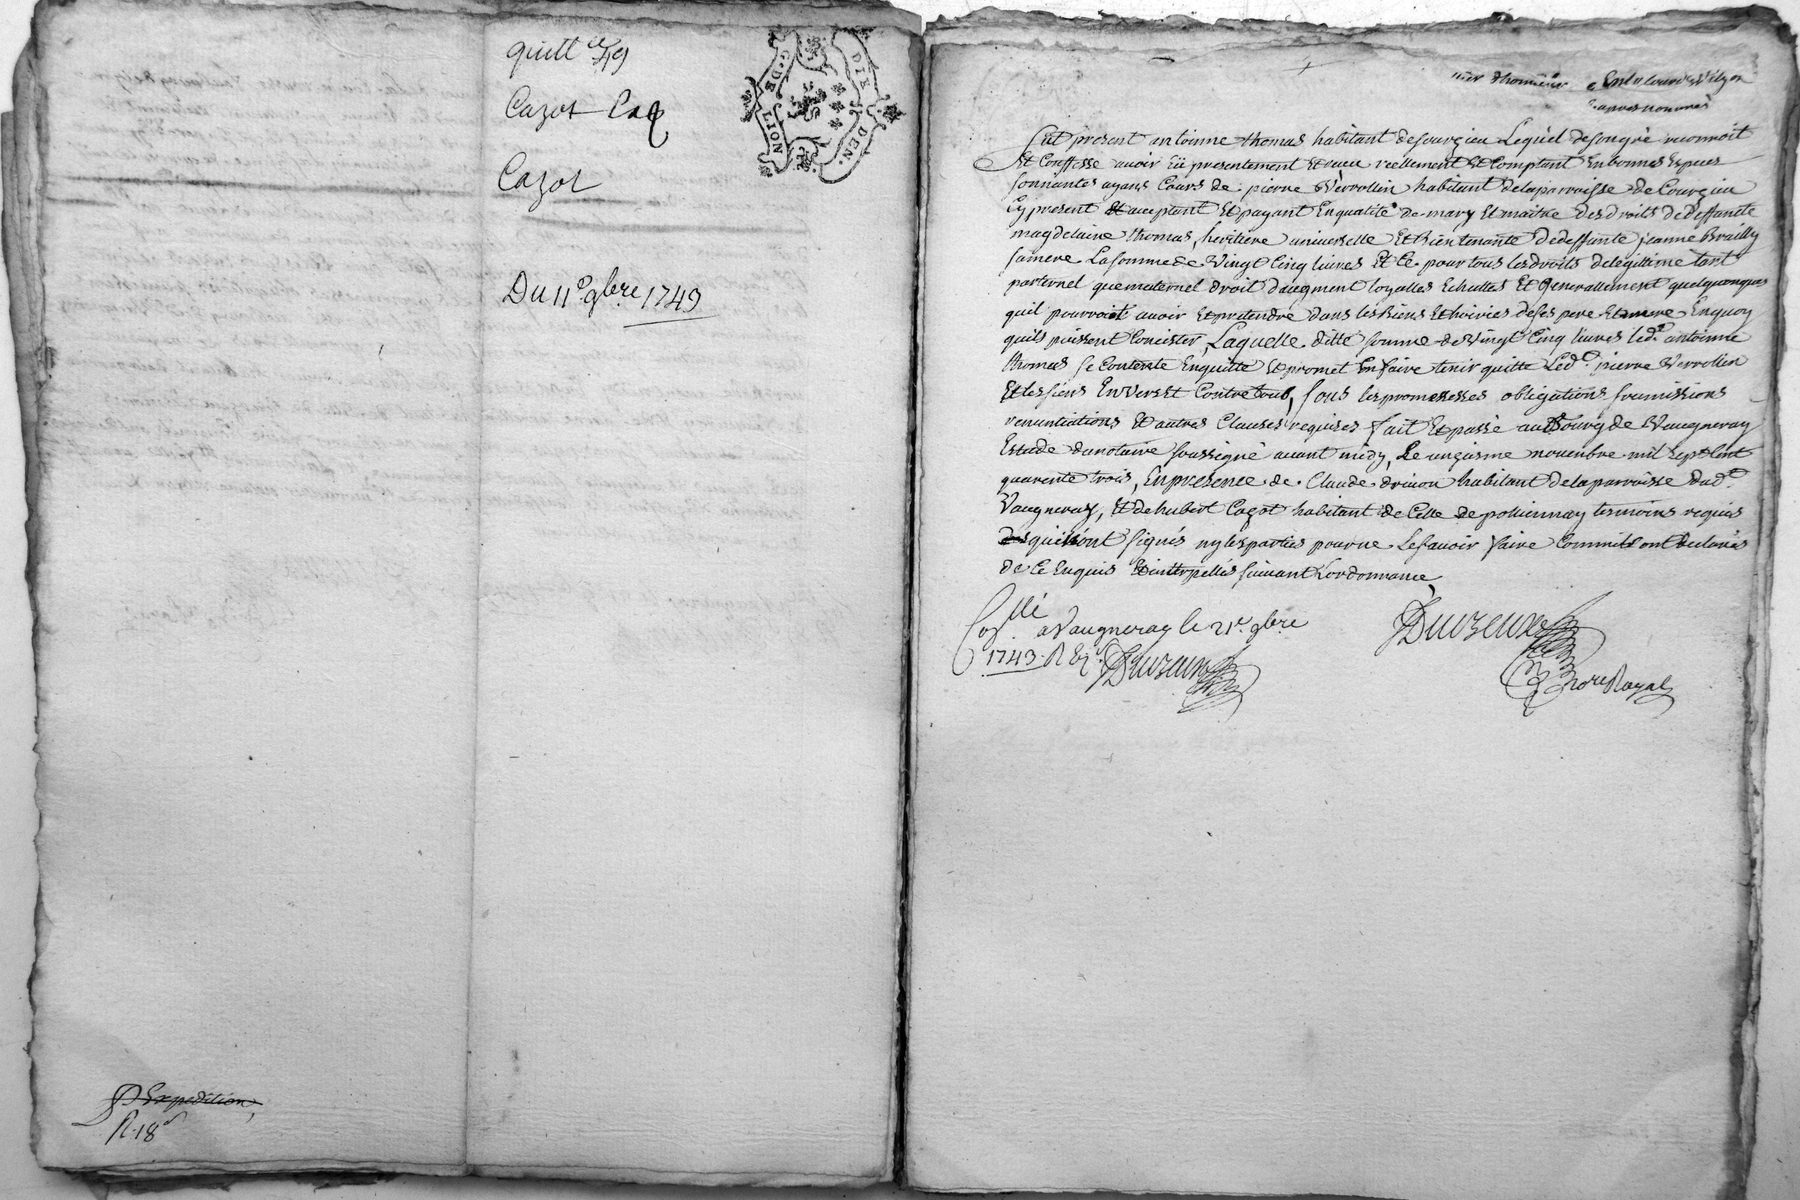 quitt ce 49
Cazot
Cazot
Du 11e 9bre 1743
G. DE LION
DIE DEN.
Expedition
R. 18 s
Fut present antoinne thomas habitant de sourgieu Lequel de son gre reconnoit
Et Confesse avoir Eü presentement Et receu reellement Et Comptant En bonnes Especes
sonnantes ayans Cours de pierre Verrollin habitant de la parroisse de Courzieu
Cy present Et acceptant Et payant En qualité de mary Et maitre des droits de deffuncte
magdelaine thomas heritiere universelle Et bientenante de deffunte jeanne Brailly
sa mere La somme de Vingt Cinq livres Et Ce pour tous les droits de legittime tant
parternel que maternel droit d'augment loyalles Echuttes Et Generallement quelquonques
quil pourroit avoir Et pretendre dans les Biens Et hoiries de ses pere Et mere En quoy
quils puissent Concister, Laquelle ditte somme de Vingt Cinq livres led.t antoinne
thomas se Contente En quitte Et promet En faire tenir quitte Led.t pierre Verrollin
Et les siens Envers Et Contre tous, sous les promesses obligations soumissions
renuntiations Et autres Clauses requises fait Et passé au Bourg de Vaugneray
Estude du notaire soussigné avant midy, Le unzieme novembre mil sept Cent
quarente trois, En presence de Claude drivon habitant de la parroisse dud.t
Vaugneray, Et de hubert Cazot habitant de Celle de pollionnay temoins requis
qui ont signés ny les parties pour ne Le scavoir faire Comme ils ont declarés
de Ce Enquis Et interpellés suivant Lordonnance
Con.llé a Vaugneray le 21e 9bre
1743. R
nore Royal